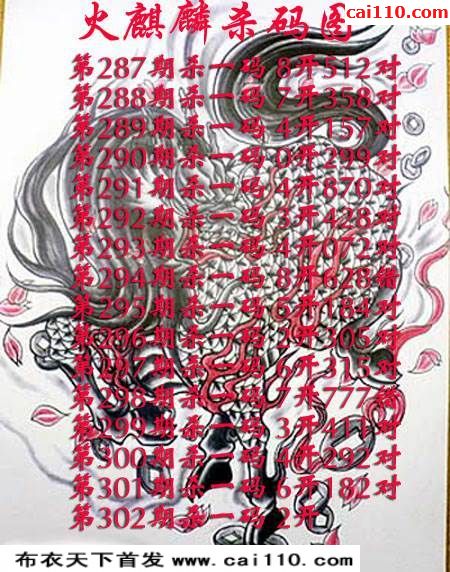 火麒麟杀码图
cai110.com
第287期杀一码 8开512对
第288期杀一码 7开358对
第289期杀一码 4开157对
第290期杀一码 0开299对
第291期杀一码 4开870对
第292期杀一码 3开428对
第293期杀一码 4开072对
第294期杀一码 8开628错
第295期杀一码 6开184对
第296期杀一码 2开305对
第297期杀一码 6开313对
第298期杀一码 7开777错
第299期杀一码 3开411对
第300期杀一码 4开292对
第301期杀一码 6开182对
第302期杀一码 2开
布衣天下首发 www.cai110.com